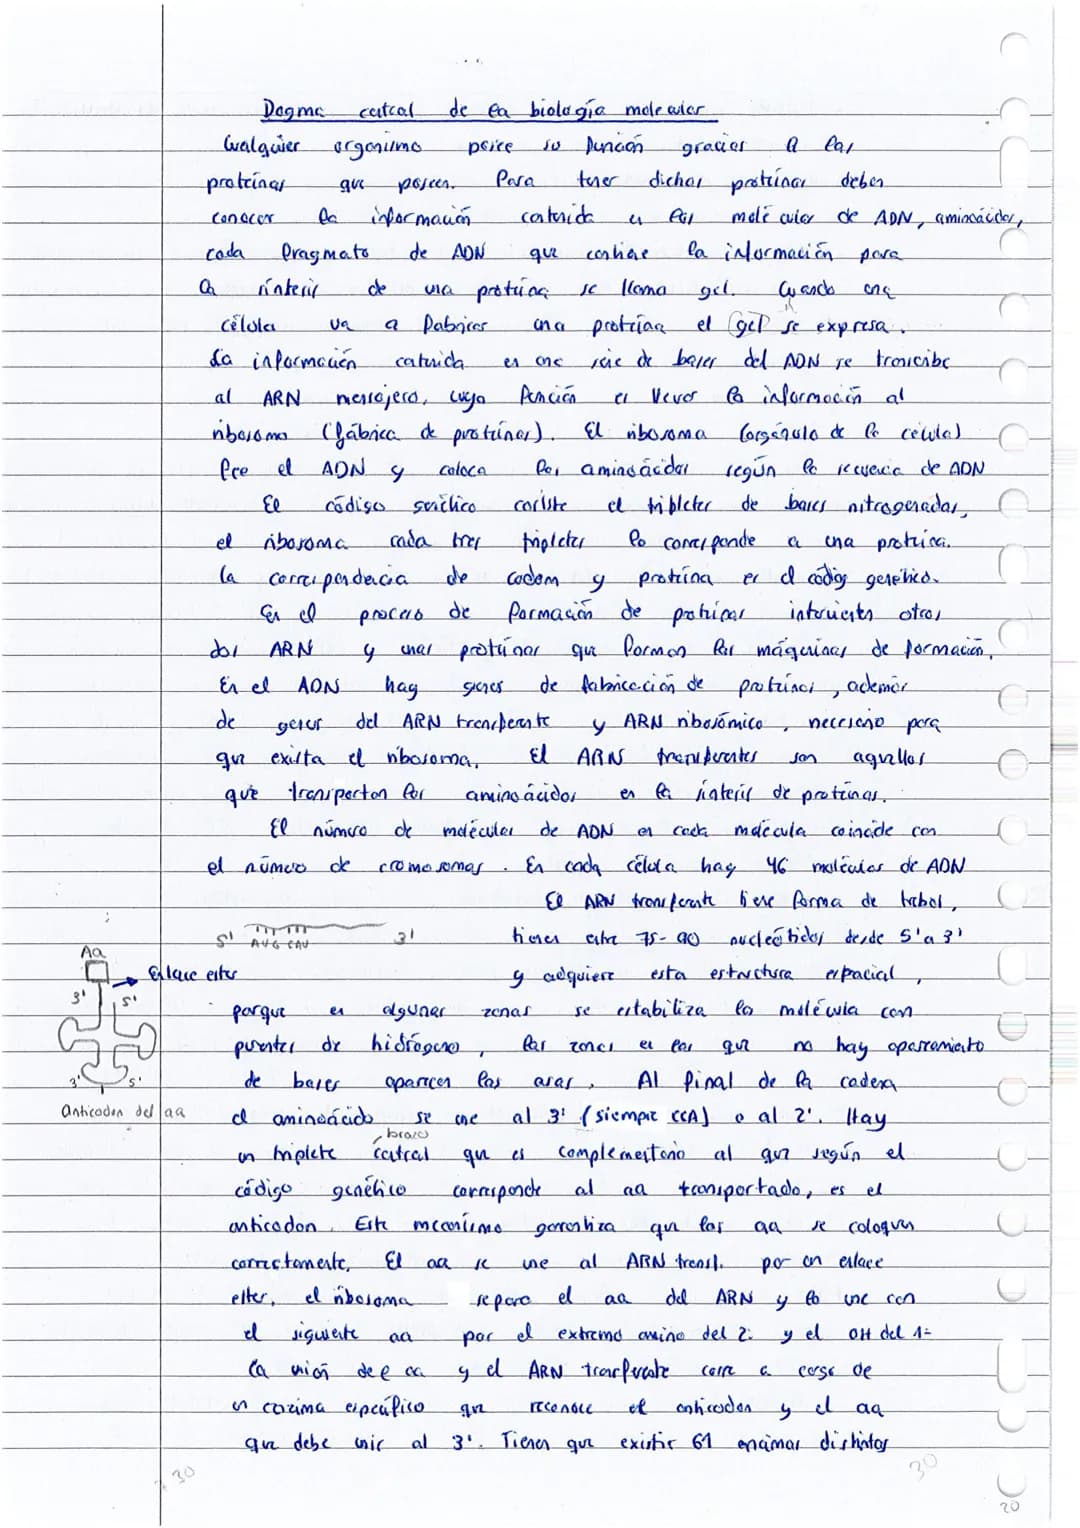 Dogma central de la biología molecular
Cualquier organismo posee su función gracias a las
proteínas que poseen. Para tener dichas proteínas deben
conocer la información contenida en las molécular de ADN, aminoácidos,
cada fragmato de ADN que contiene la información para
la síntesis de una proteína se llama gel. Cuando una
célula va a fabricar una proteína el gel se expresa.
La información contenida en una serie de bases del ADN se transcribe
al ARN mensajero, cuya función es llevar la información al
ribosoma (fábrica de proteínas). El ribosoma (orgánulo de la célula)
lee el ADN y coloca los aminoácidos según la secuencia de ADN
El código genético consiste el tripletes de bases nitrogenadas,
el ribosoma cada tres tripletes lo corresponde a una proteína.
La correspondencia de codom y proteína es el código genético.
En el proceso de formación de proteínas intervienen otros
dos ARN y unas proteínas que forman las máquinas de formación.
En el ADN hay genes de fabricación de proteínas, además
de genes del ARN transferente y ARN ribosómico, necesario para
que exista el ribosoma. El ARNs transferentes son aquellos
que transportan los aminoácidos en la síntesis de proteínas.
El número de moléculas de ADN en cada molécula coincide con
el número de cromosomas. En cada célula hay 46 moléculas de ADN
El ARN transferente tiene forma de trebol,
5' AUG CAU 3' tienen entre 75-90 nucleótidos desde 5' a 3'
Aa
Enlace ester y adquiere esta estructura espacial,
3' 5' porque en algunas zonas se estabiliza la molécula con
puentes de hidrógeno, las zonas en las que no hay apareamiento
3' 5' de bases aparecen las asas. Al final de la cadena
Anticodon del aa el aminoácido se une al 3' (siempre CCA) o al 2'. Hay
brazo
un triplete central que es complementario al que según el
código genético corresponde al aa transportado, es el
anticodon. Este mecanismo garantiza que los aa se coloquen
correctamente. El aa se une al ARN transf. por un enlace
ester, el ribosoma separa el aa del ARN y lo une con
el siguiente aa por el extremo amino del 2º y el OH del 1º
La unión del aa y el ARN transferente corre a cargo de
un enzima específico que reconoce el anticodon y el aa
que debe unir al 3'. Tienen que existir 61 encimas distintos
30
30
20